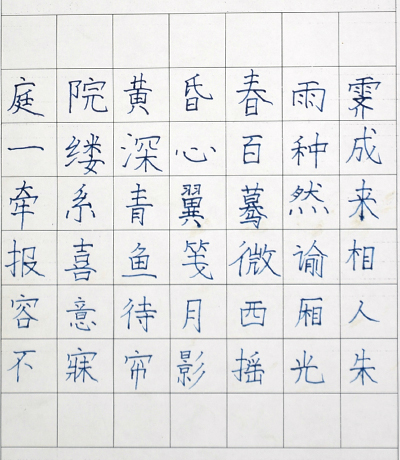 庭院黄昏春雨霁
一缕深心百种成
牵系青翼蓦然来
报喜鱼笺微谕相
容意待月西厢人
不寐帘影摇光朱